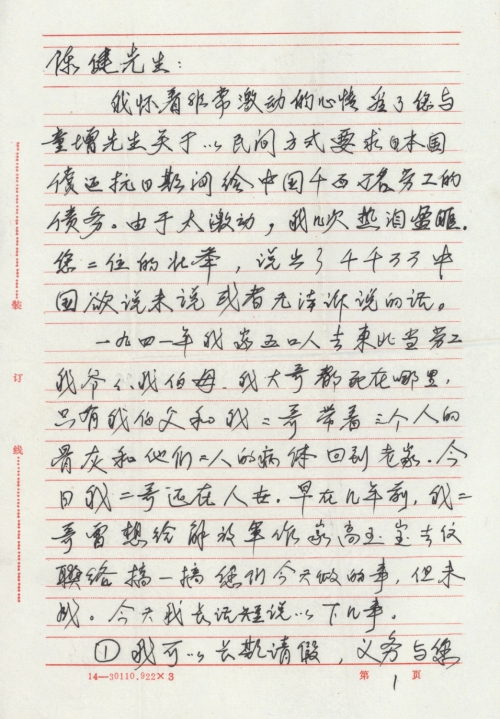 陈健先生：
我怀着非常激动的心情 看了您与
童增先生关于以民间方式要求日本国
偿还抗日期间给中国千百万名劳工的
债务。由于太激动，我几次热泪盈眶.
您二位的壮举，说出了千千万万中
国欲说未说或者无法诉说的话。
一九四一年我家五口人去东北当劳工
我爷爷、我伯母、我大哥都死在哪里,
只有我伯父和我二哥带着三个人的
骨灰和他们二人的病体回到老家.今
日我二哥还在人世.早在几年前,我二
哥曾想给解放军作家高玉宝去信
联络搞一搞您们今天做的事,但未
成。今天我长话短说以下几事。
①我可以长期请假，义务与您
装
订
线
14—30110.922×3
第 1 页